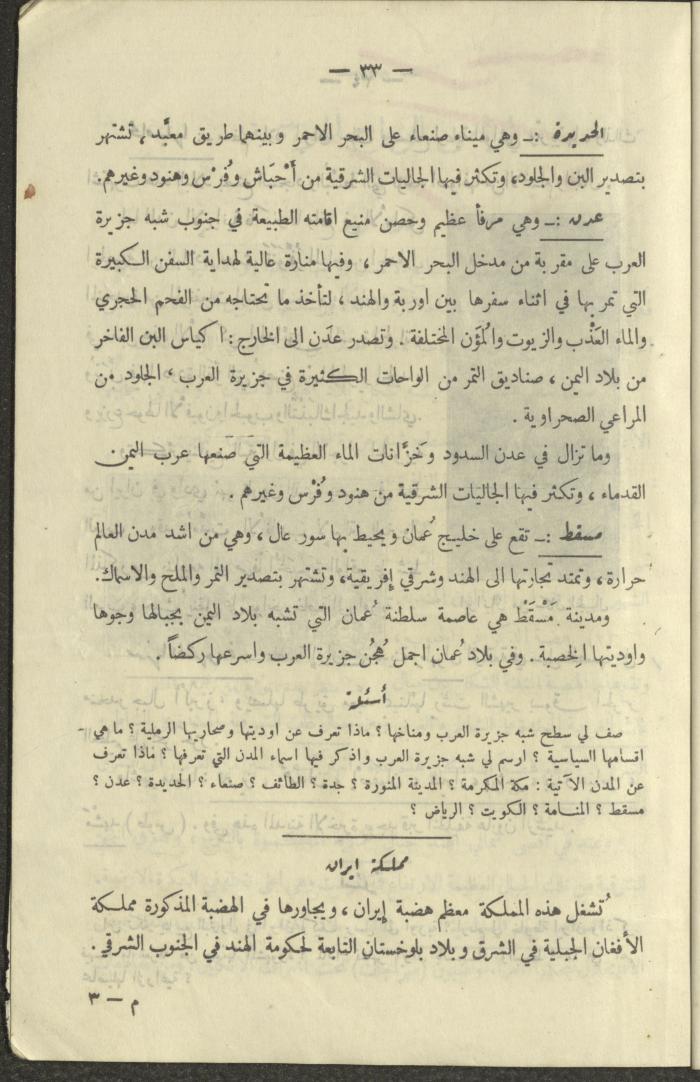 — ٣٣ —
الحديدة :ـ وهي ميناء صنعاء على البحر الاحمر وبينهما طريق معبَّد ، تشتهر
بتصدير البن والجلود، وتكثر فيها الجاليات الشرقية من أَحْبَاش وفُرْس وهنود وغيرهم.
عدن :ـ وهي مرفأ عظيم وحصن منيع اقامته الطبيعة في جنوب شبه جزيرة
العرب على مقربة من مدخل البحر الاحمر ، وفيها منارة عالية لهداية السفن الكبيرة
التي تمر بها في اثناء سفرها بين اوربة والهند ، لتأخذ ما تحتاجه من الفحم الحجري
والماء العَذْب والزيوت والمُؤَن المختلفة . وتصدر عدَن الى الخارج : اكياس البن الفاخر
من بلاد اليمن ، صناديق التمر من الواحات الكثيرة في جزيرة العرب ، الجلود من
المراعي الصحراوية .
وما تزال في عدن السدود وخَزَّانات الماء العظيمة التي صَنعها عرب اليمن
القدماء ، وتكثر فيها الجاليات الشرقية من هنود وفُرْس وغيرهم .
مسقط :ـ تقع على خليج عُمان ويحيط بها سور عال ، وهي من اشد مدن العالم
حرارة ، وتمتد تجارتها الى الهند وشرقي إفريقية، وتشتهر بتصدير التمر والملح والاسماك.
ومدينة مَسْقَط هي عاصمة سلطنة عُمان التي تشبه بلاد اليمن بجبالها وجوها
واوديتها الخصبة . وفي بلاد عُمان اجمل هُجُن جزيرة العرب واسرعها ركضاً .
أسئلة
صف لي سطح شبه جزيرة العرب ومناخها ؟ ماذا تعرف عن اوديتها وصحاريها الرملية ؟ ما هي
اقسامها السياسية ؟ ارسم لي شبه جزيرة العرب واذكر فيها اسماء المدن التي تعرفها ؟ ماذا تعرف
عن المدن الآتية : مكة المكرمة ؟ المدينة المنورة ؟ جدة ؟ الطائف ؟ صنعاء ؟ الحديدة ؟ عدن ؟
مسقط ؟ المنامة ؟ الكويت ؟ الرياض ؟
مملكة ايران
تُشغل هذه المملكة معظم هضبة إيران ، ويجاورها في الهضبة المذكورة مملكة
الأفغان الجبلية في الشرق وبلاد بلوخستان التابعة لحكومة الهند في الجنوب الشرقي .
م — ٣